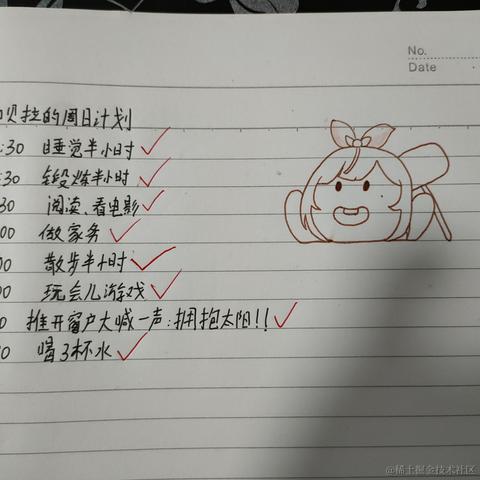 No.
Date
贝拉的周日计划
:30 睡觉半小时
:30 锻炼半小时
30 阅读、看电影
00 做家务
00 散步半小时
00 玩会儿游戏
0 推开窗户大喊一声:拥抱太阳!!
0 喝3杯水
@稀土掘金技术社区